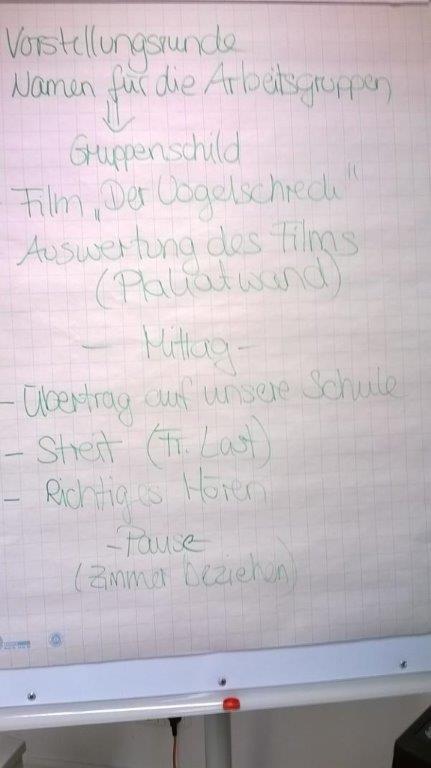 Vorstellungsrunde
Namen für die Arbeitsgruppen
⇓
Gruppenschild
Film „Der Vogelschreck"
Auswertung des Films
(Plakatwand)
- Mittag -
- Übertrag auf unsere Schule
- Streit (Fr. Last)
- Richtiges Hören
- Pause
(Zimmer beziehen)